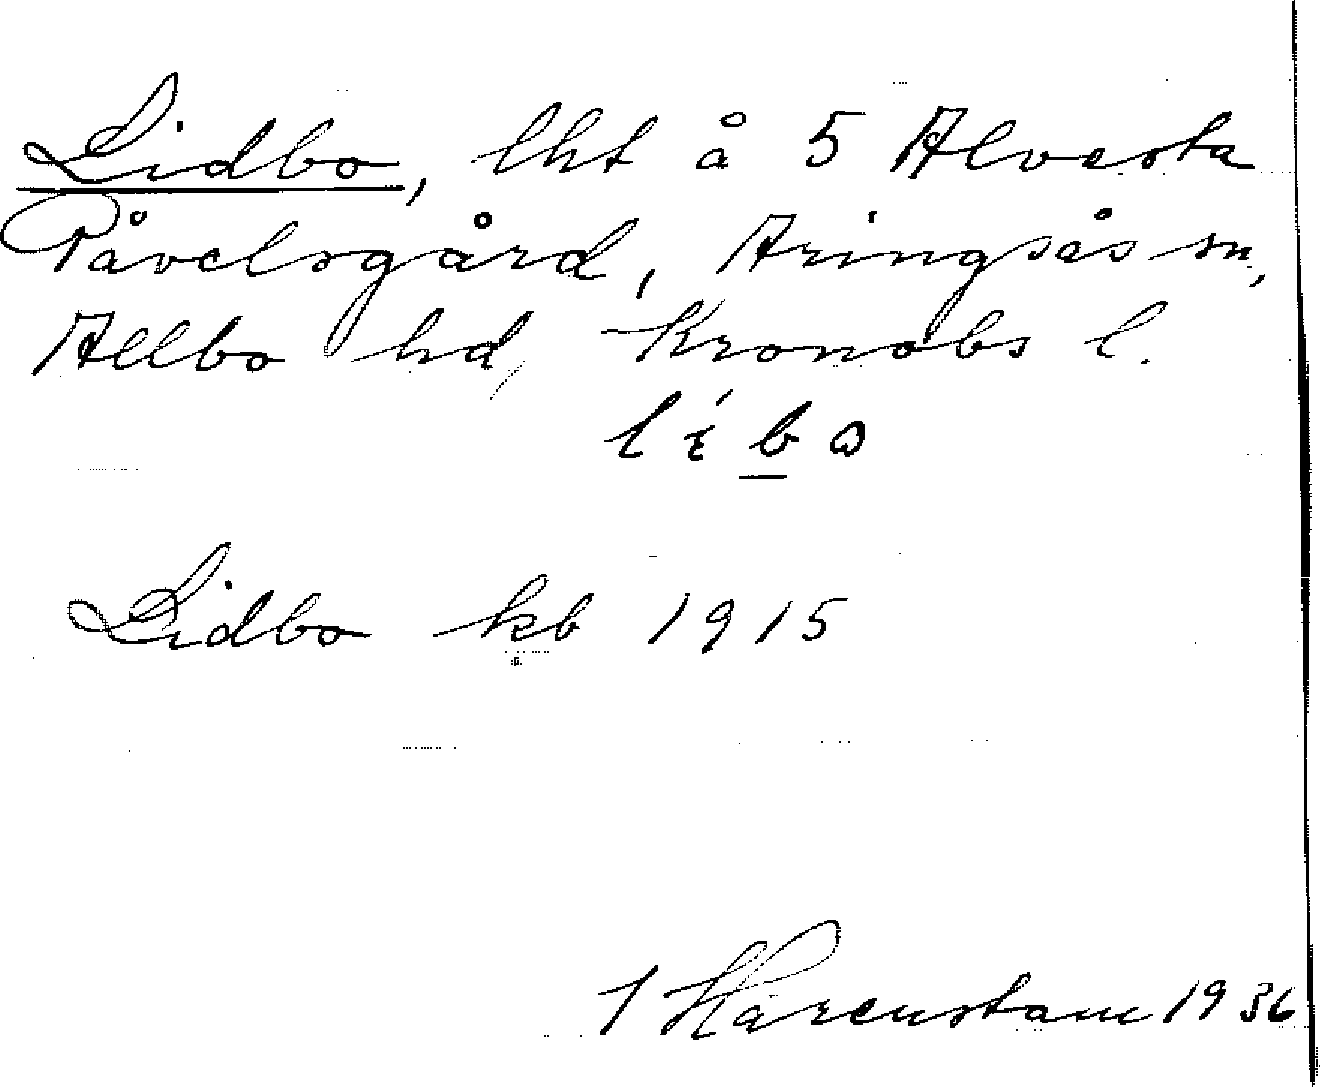 Lidbo, lht å 5 Alvesta
Påvelsgård, Aringsås sn,
Allbo hd, Kronobs l.
libo
Lidbo kb 1915
1 Hårenstam 1936